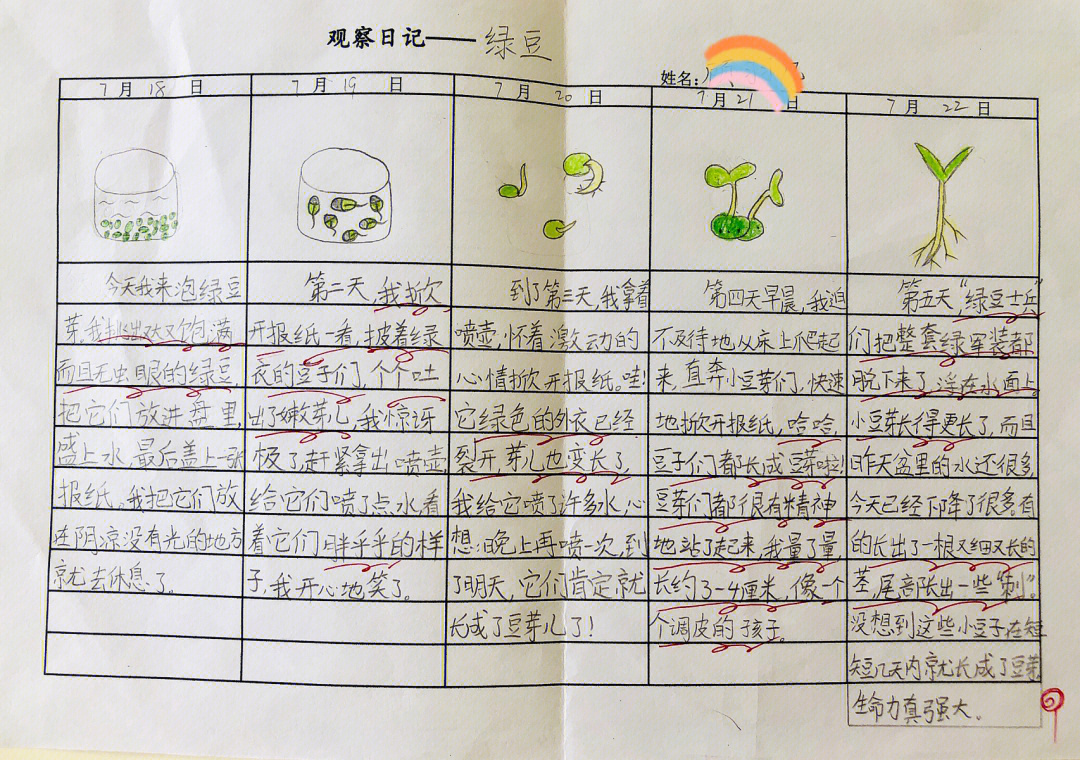 观察日记——绿豆
姓名:
7月18日
今天我来泡绿豆
芽。我挑出又大又饱满
而且无虫眼的绿豆
把它们放进盘里,
盛上水,最后盖上一张
报纸。我把它们放
在阴凉没有光的地方
就去休息了。
7月19日
第二天,我掀
开报纸一看,披着绿
衣的豆子们,个个吐
出了嫩芽儿,我惊讶
极了赶紧拿出喷壶
给它们喷了点水,看
着它们胖乎乎的样
子,我开心地笑了。
7月20日
到了第三天,我拿着
喷壶,怀着激动的
心情掀开报纸。哇!
它绿色的外衣已经
裂开,芽儿也变长了,
我给它喷了许多水,心
想:晚上再喷一次,到
了明天,它们肯定就
长成了豆芽儿了!
7月21日
第四天早晨,我迫
不及待地从床上爬起
来,直奔小豆芽们,快速
地掀开报纸,哈哈,
豆子们都长成豆芽啦!
豆芽们都很有精神
地站了起来,我量了量,
长约3-4厘米,像一个
个调皮的孩子。
7月22日
第五天,“绿豆士兵”
们把整套绿军装都
脱下来了,浮在水面上。
小豆芽长得更长了,而且
昨天盆里的水还很多,
今天已经下降了很多有
的长出了一根又细又长的
茎,尾部长出一些“刺”。
没想到这些小豆子在短
短几天内就长成了豆芽,
生命力真强大。